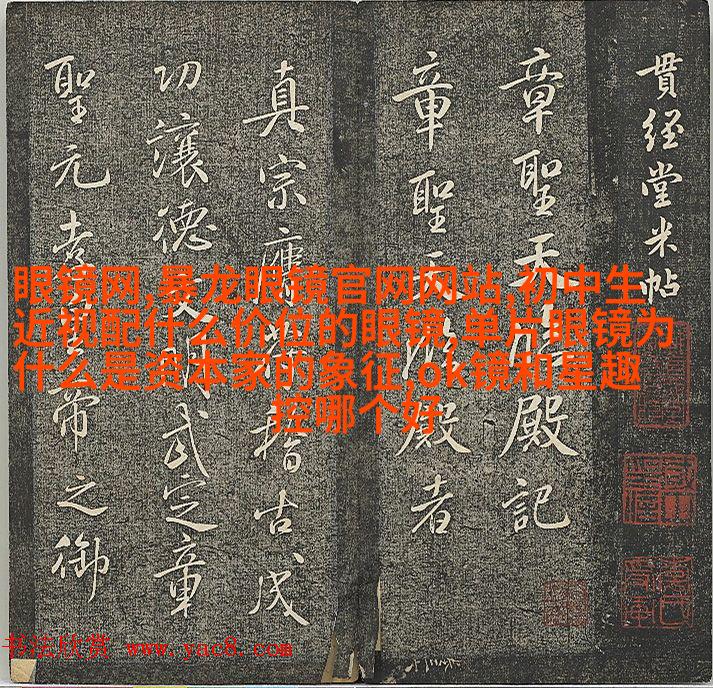 貫經堂米帖
章聖天臨殿記
章聖天臨殿者
真宗膺符稽古成
功讓德文明武定章
聖元孝皇帝之御
眼镜网,暴龙眼镜官网网站,初中生
近视配什么价位的眼镜,单片眼镜为
什么是资本家的象征,ok镜和星趣
控哪个好
书法欣赏 www.yac8.com